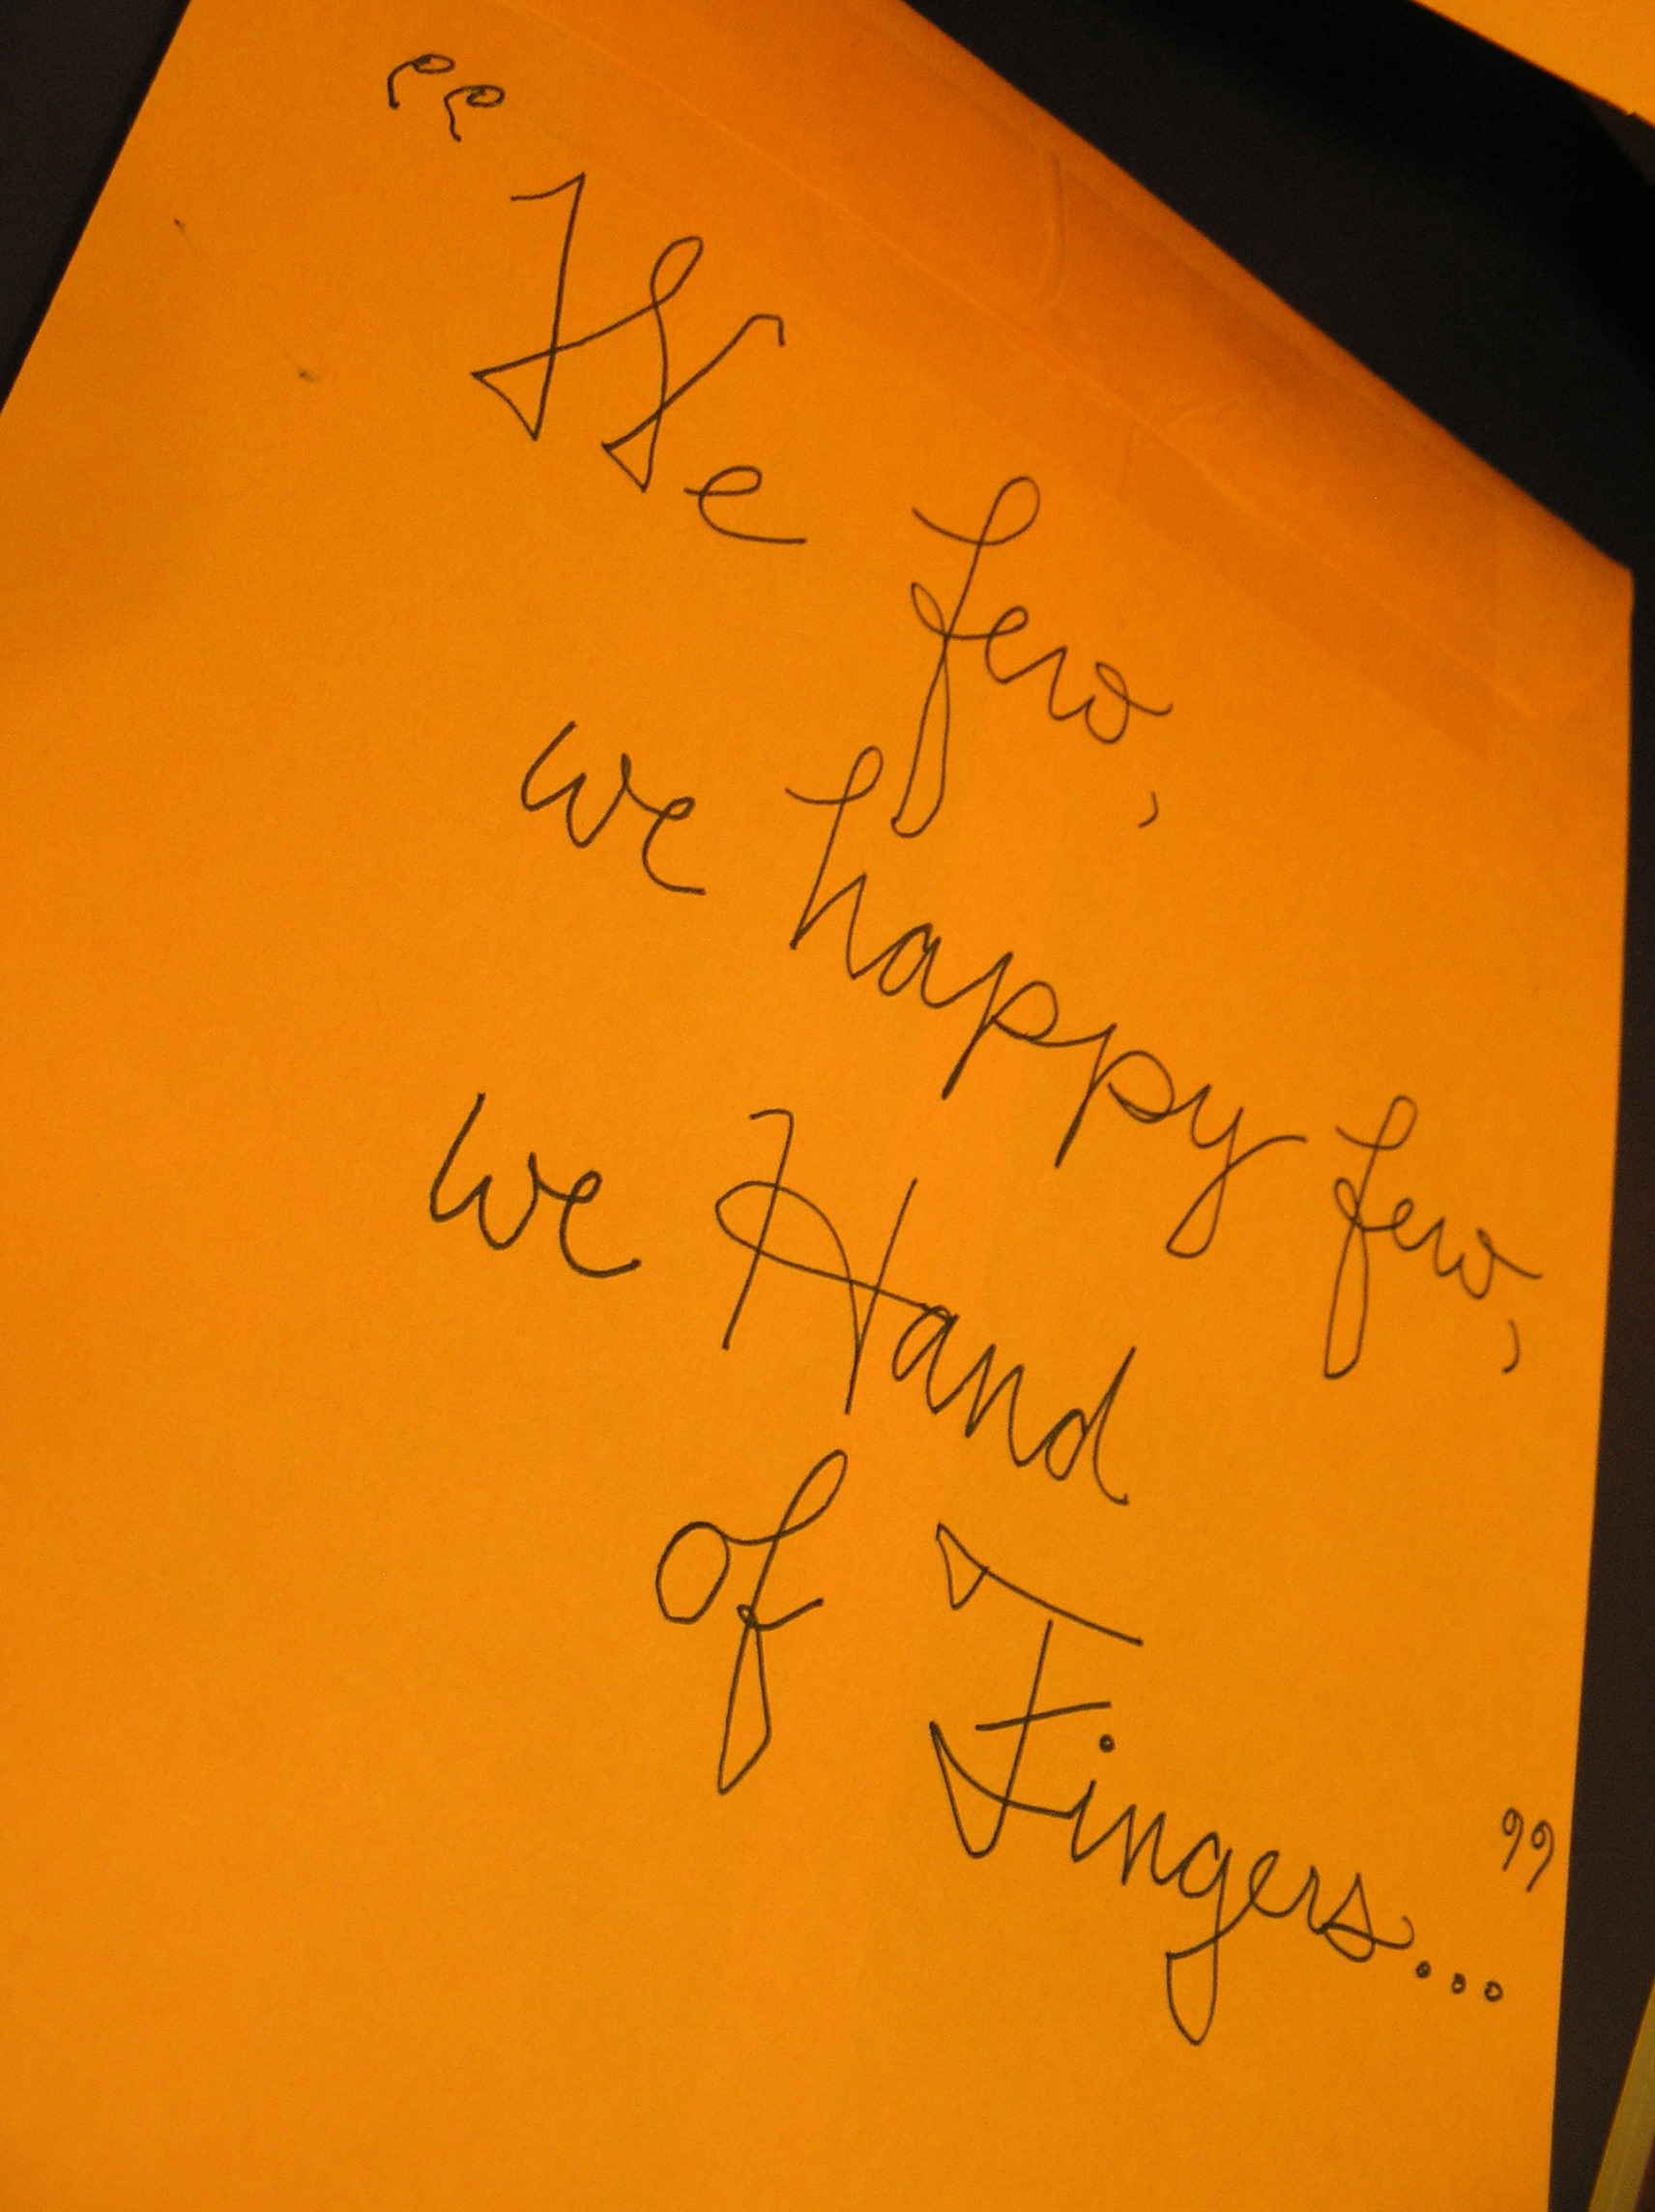 “We few,
we happy few,
we Hand
of Fingers...”